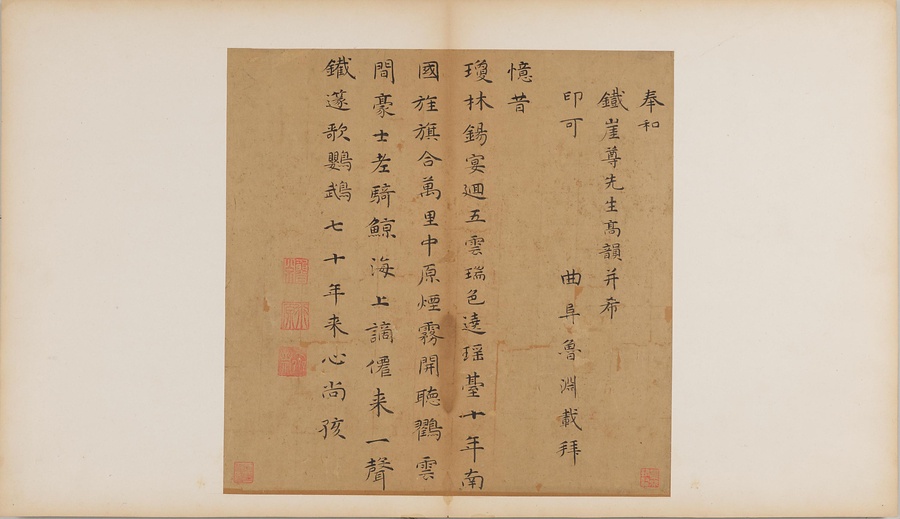 奉和
鐵崖尊先生高韻并希
印可 曲阜魯淵載拜
憶昔
瓊林錫宴迴五雲瑞色遶瑤臺十年南
國旌旗合萬里中原煙霧開聴鸛雲
間豪士老騎鯨海上謫僊来一聲
鐵篴歌鸚鵡七十年来心尚孩